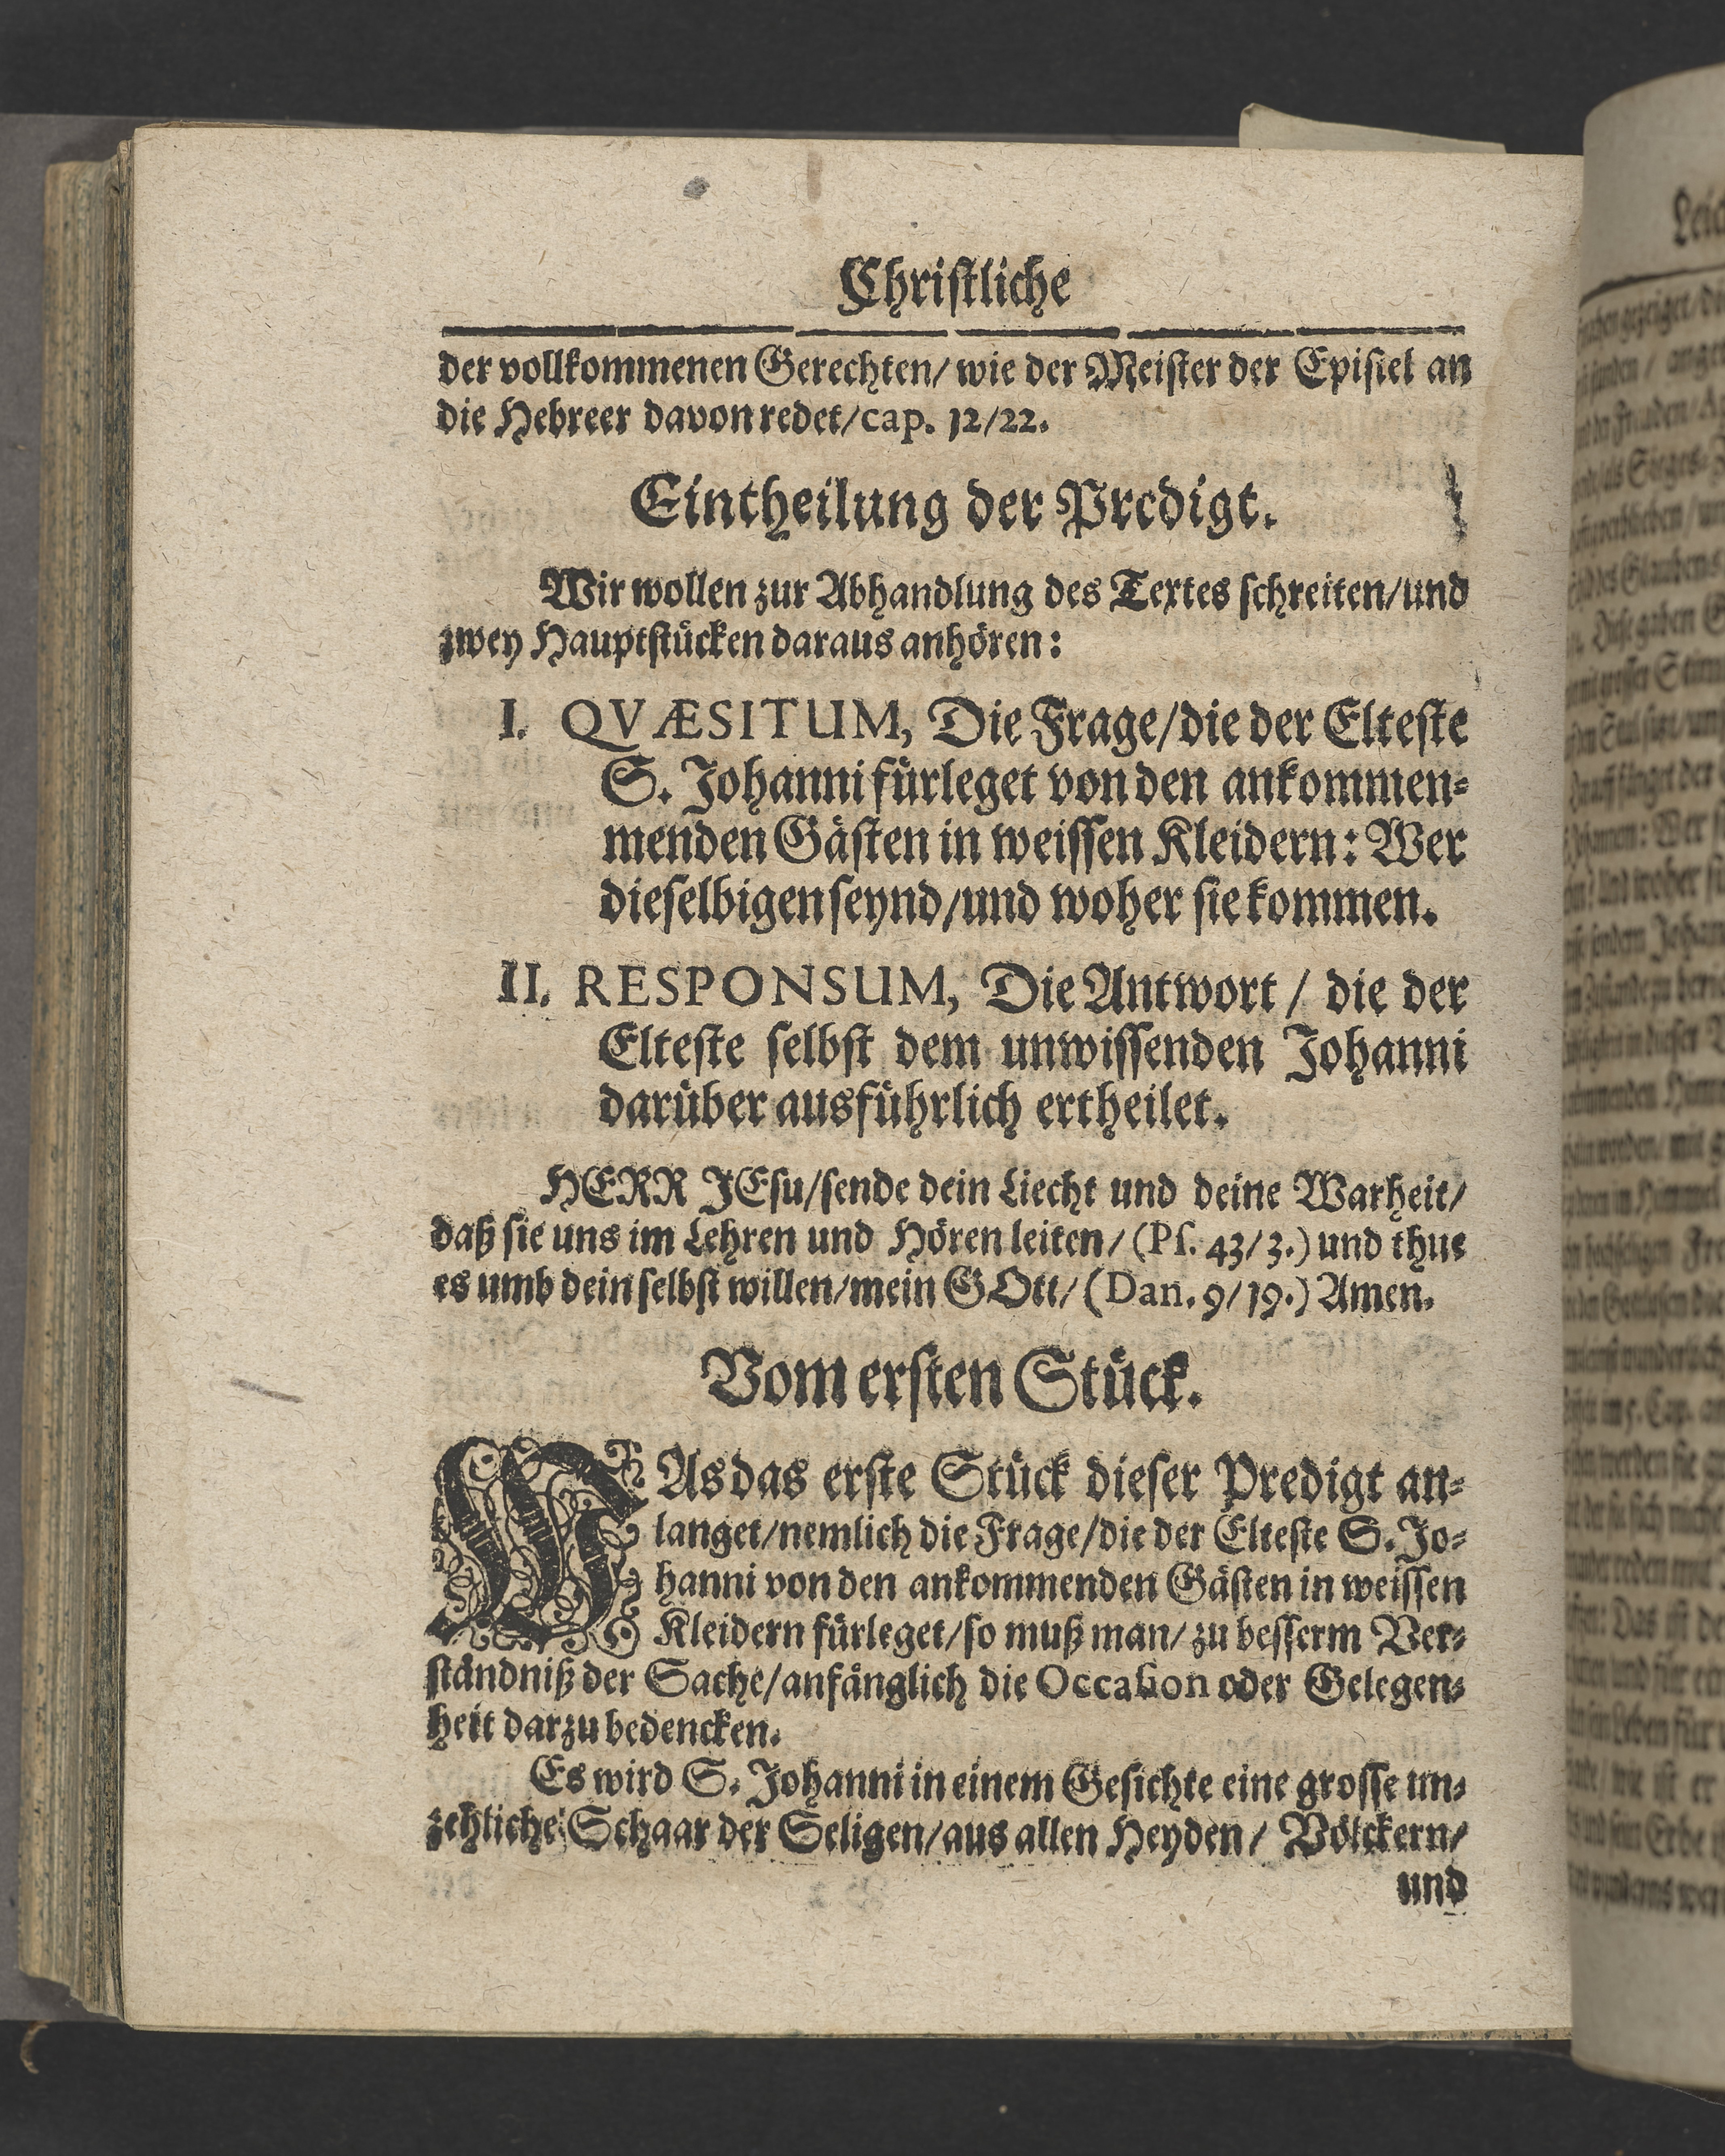 Christliche
der vollkommenen Gerechten/ wie der Meister der Epistel an
die Hebreer davon redet/ cap. 12/22.
Eintheilung der Predigt.
Wir wollen zur Abhandlung des Textes schreiten/und
zwey Hauptstücken daraus anhören:
I. QVÆSITUM, Die Frage/die der Elteste
S. Johanni fürleget von den ankommen-
menden Gästen in weissen Kleidern: Wer
dieselbigen seynd/und woher sie kommen.
II. RESPONSUM, Die Antwort / die der
Elteste selbst dem unwissenden Johanni
darüber ausführlich ertheilet.
HERR JEsu/sende dein Liecht und deine Warheit/
daß sie uns im Lehren und Hören leiten/ (Ps. 43/3.) und thue
es umb dein selbst willen/mein GOtt/ (Dan. 9/19.) Amen.
Vom ersten Stück.
WAs das erste Stück dieser Predigt an-
langet/nemlich die Frage/die der Elteste S. Jo-
hanni von den ankommenden Gästen in weissen
Kleidern fürleget/so muß man/ zu besserm Ver-
ständniß der Sache/anfänglich die Occasion oder Gelegen-
heit darzu bedencken.
Es wird S. Johanni in einem Gesichte eine grosse un-
zehliche Schaar der Seligen/aus allen Heyden/ Völckern/
und